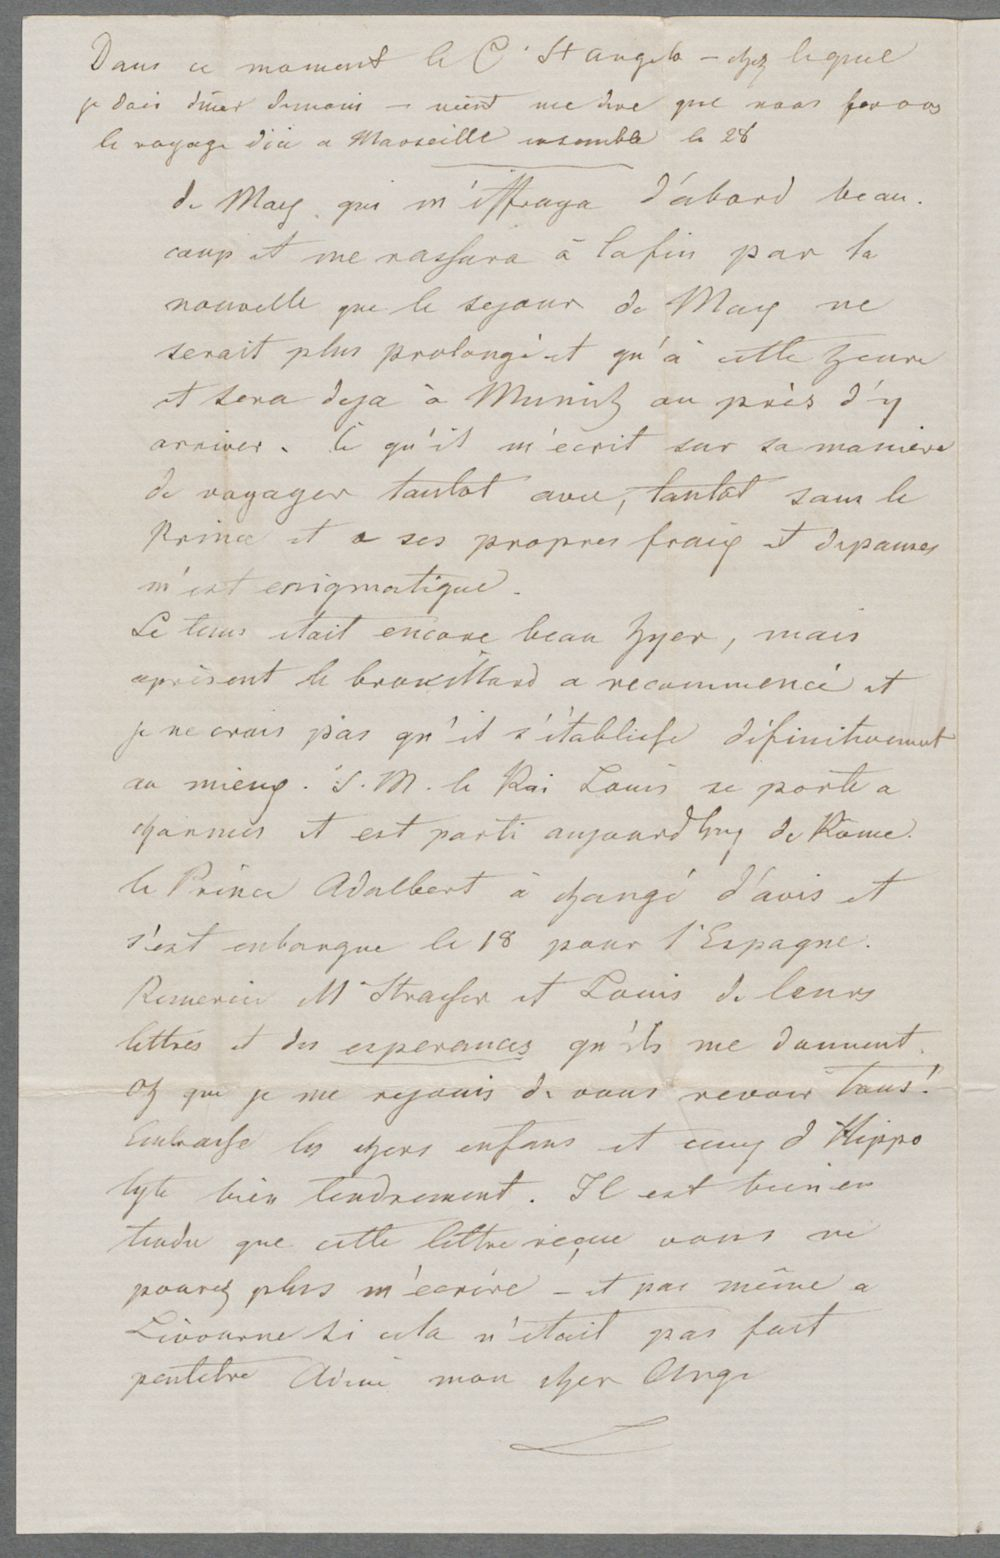 Dans ce moment le C. St Angelo – chez lequel
je dois diner demain – vient me dire que nous ferons
le voyage d'ici a Marseille ensemble le 28
de Max qui m'effraya d'abord beau-
coup et me rassura à la fin par la
nouvelle que le sejour de Max ne
serait plus prolongé et qu'à cette heure
et sera deja à Munich ou près d'y
arriver. Ce qu'il m'ecrit sur sa maniere
de voyager tantot avec, tantot sans le
Prince et a ses propres fraix et depanses
m'est enigmatique.
Le tems etait encore beau hyer, mais
apresent le brouillard a recommencé et
je ne crois pas qu'il s'établisse définitivement
au mieux. S. M. le Roi Louis se porte a
charmes et est parti aujourdhuy de Rome.
le Prince Adalbert à changé d'avis et
s'est enbarque le 18 pour l'Espagne.
Remercie Mr Strasser et Louis de leurs
lettres et des esperances qu'ils me donnent.
Oh que je me rejouis de vous revoir tous!
Embrasse les chers enfans et ceux d'Hippo
lyte bien tendrement. Il est bien en
tendu que cette lettre reçue vous ne
pouvez plus m'ecrire – et pas même a
Livourne si cela n'etait pas fait
peutetre Adieu mon cher Ange
L